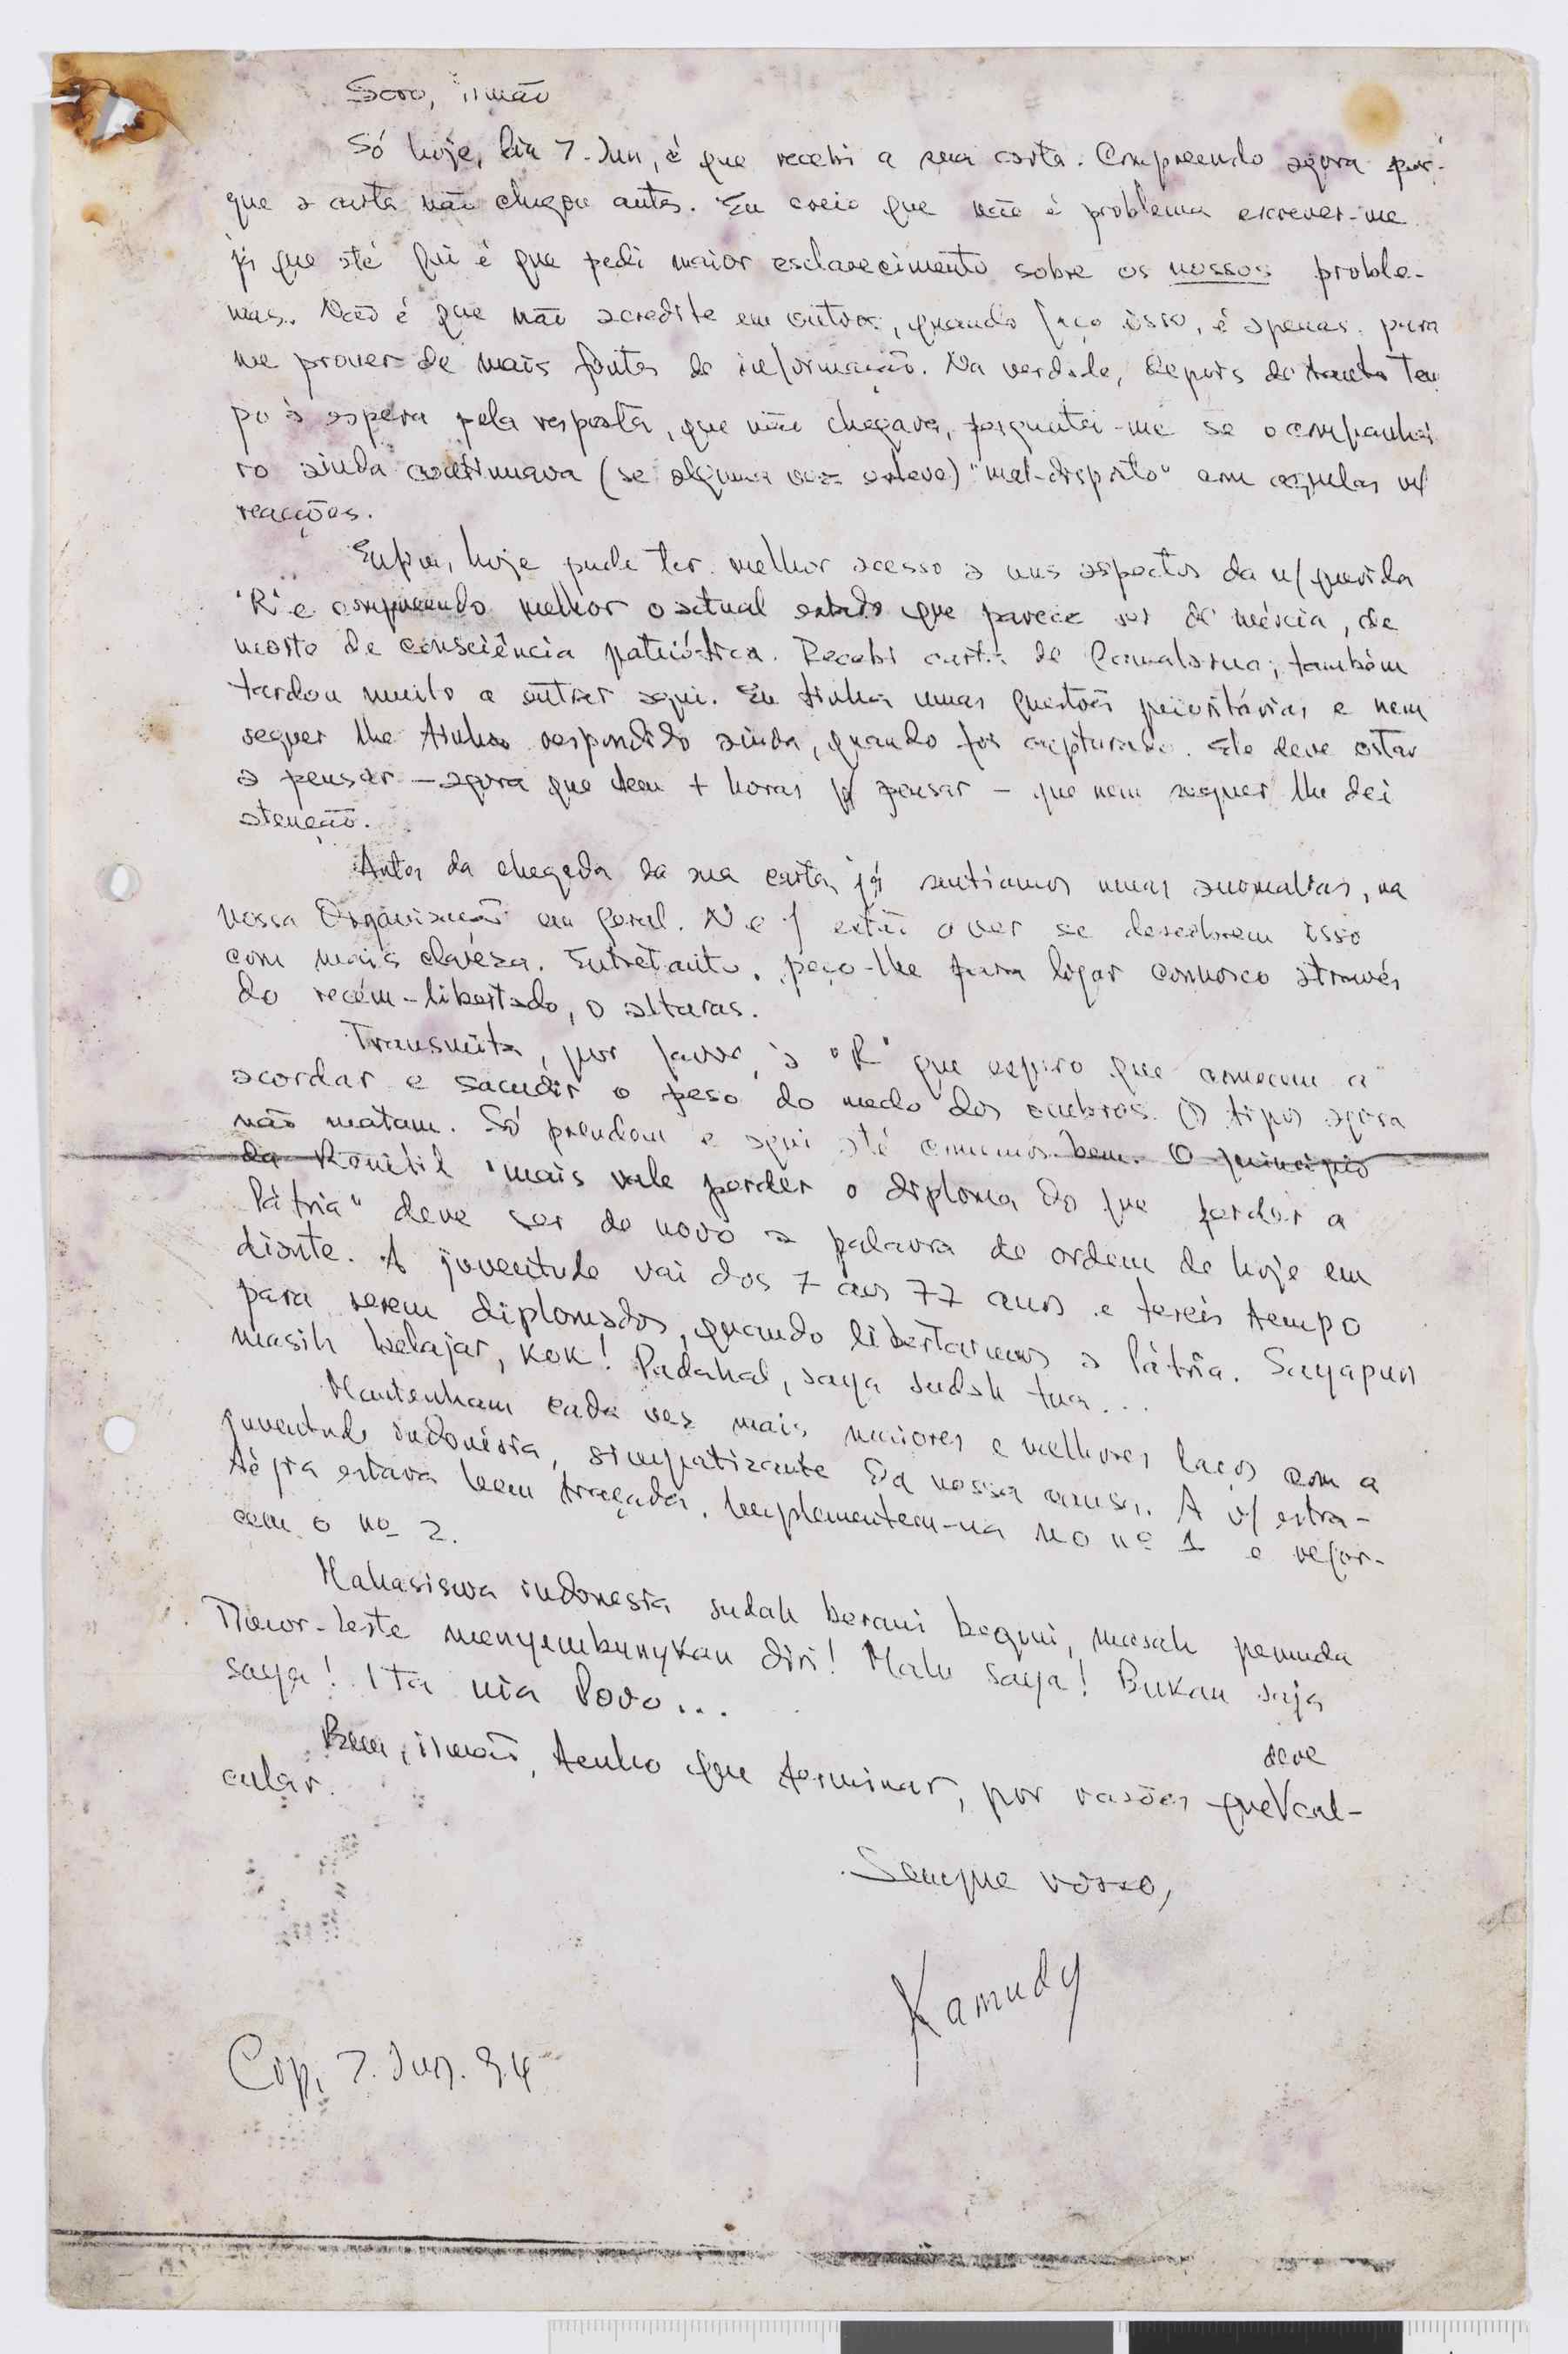 Soro, irmão
Só hoje, dia 7. Jun, é que recebi a sua carta. Compreendo agora por-
que a carta não chegou antes. Eu creio que não é problema escrever-me
já que até fui é que pedi maior esclarecimento sobre os nossos proble-
mas. Não é que não acredite em outros, quando faço isso, é apenas para
me prover de mais fontes de informação. Na verdade, depois de tanto tem
po à espera pela resposta, que não chegava, perguntei-me se o companhei
ro ainda continuava (se alguma vez esteve) "mal-disposto" com aquelas n/
reacções.
Enfim, hoje pude ter melhor acesso a uns aspectos da n/ querida
"R" e compreendo melhor o actual estado que parece ser de inércia, de
morte de consciência patriótica. Recebi carta de; também
tardou muito a entrar aqui. Eu tinha umas questões prioritárias e nem
sequer lhe tinha respondido ainda, quando foi capturado. Ele deve estar
a pensar — agora que tem + horas p/ pensar — que nem sequer lhe dei
atenção.
Antes da chegada da sua carta, já sentíamos umas anomalias, na
nossa Organização em geral. N e J estão a ver se descobrem isso
com mais clareza. Entretanto, peço-lhe para ligar connosco através
do recém-libertado, o altaras.
Transmita, por favor, à "R" que espero que comecem a
acordar e sacudir o peso do medo dos ombros. Os tipos agora
não matam. Só prendem e aqui até comemos bem. O princípio
da Renetil "mais vale perder o diploma do que perder a
Pátria" deve ser de novo a palavra de ordem de hoje em
diante. A juventude vai dos 7 aos 77 anos e tereis tempo
para serem diplomados, quando libertarmos a Pátria. Sayapun
masih belajar, kok! Padahal, saya sudah tua...
Mantenham cada vez mais maiores e melhores laços com a
juventude indonésia, simpatizante da nossa causa. A v/ estra-
tégia estava bem traçada. Implementem-na no nº 1 e refor-
cem o nº 2.
Mahasiswa indonesia sudah berani begini, masah pemuda
Timor-Leste menyembunyikan diri! Malu saya! Bukan saja
saya! Ita nia Povo...
Bem, irmão, tenho que terminar, por razões que deve cal-
cular.
Sempre vosso,
Kamudy
Cip, 7. Jun. 94